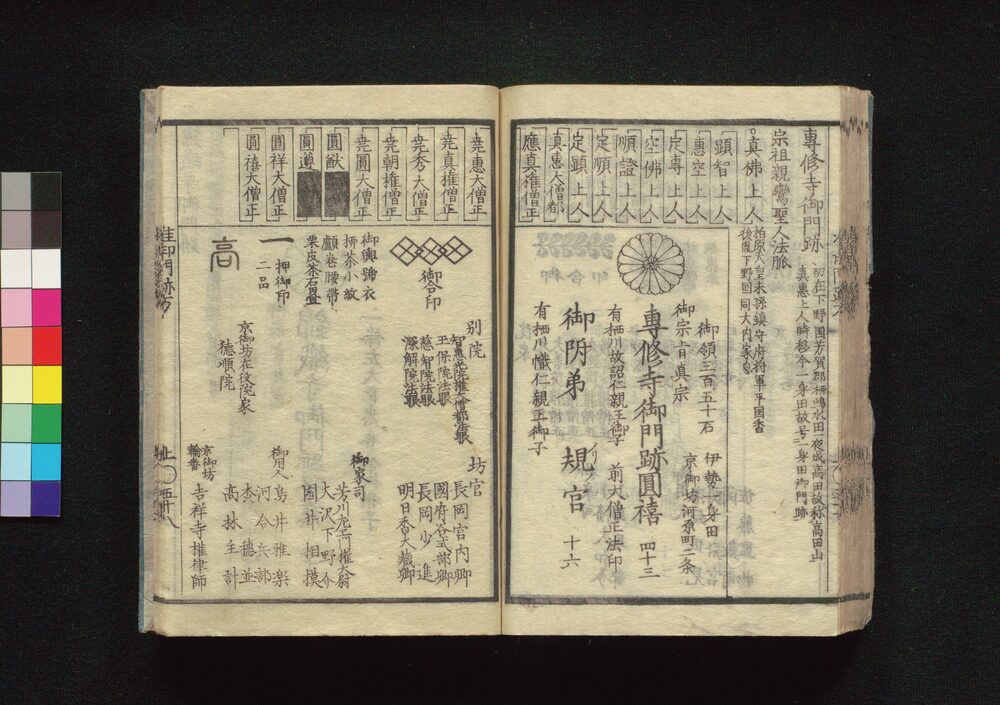 專修寺御門跡
初在下野国芳賀郡栁嶋水田一夜成高田故称高田山
真惠上人時移今一身田故号一身田御門跡
宗祖親鸞聖人法脈
○真佛上人
柏原天皇末孫鎮守府将軍平国香
後胤下野国司大内家息
顕智上人
惠空上人
定専上人
空佛上人
順證上人
定順上人
定顕上人
真惠大僧都
應真権僧正
御領三百五十石
伊勢一身田
御宗旨真宗
京御坊河原町二条
專修寺御門跡圓禧
四十三
有栖川故韶仁親王御子
前大僧正法印
御附弟
規官
十六
有栖川幟仁親王御子
尭惠大僧正
尭真権僧正
尭秀大僧正
尭朝権僧正
尭圓大僧正
圓猷
圓遵
圓祥大僧正
圓禧大僧正
御合印
御輿舁衣
栁茶小紋
顱巻腰帯
栗皮茶石畳
一
押御印
二品
高
別院
智惠光院権大僧都法眼
玉保院法眼
慈智院法眼
深解院法眼
京御坊在役院家
徳順院
坊官
長岡宮内卿
國府谷式部卿
長岡少進
明日香大藏卿
御家司
芳川左衛門権大尉
大沢下野介
園井相摸
御用人
鳥井雅楽
河合兵部
森徳並
高林主計
京御坊
輪番
吉祥寺権律師
准門跡方
上〇五十八